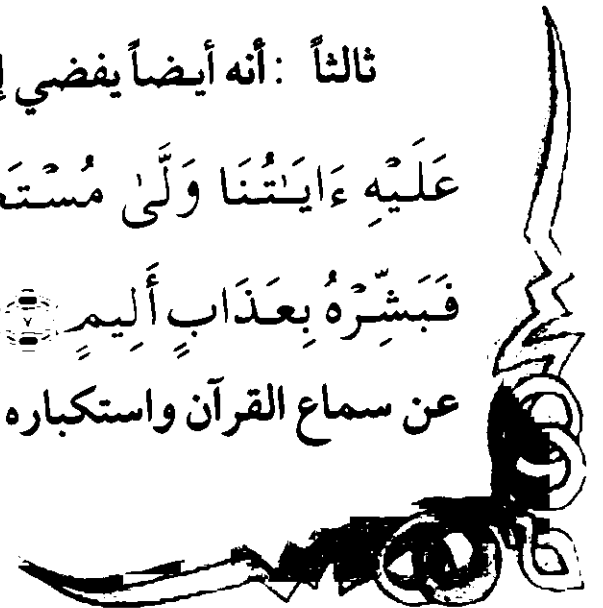 ثالثاً : أنه أيضاً يفضي
عَلَيْهِ ءَايَـٰتُنَا وَلَّىٰ
فَبَشِّرْهُ بِعَذَابٍ أَلِيمٍ ٧
عن سماع القرآن واستكباره